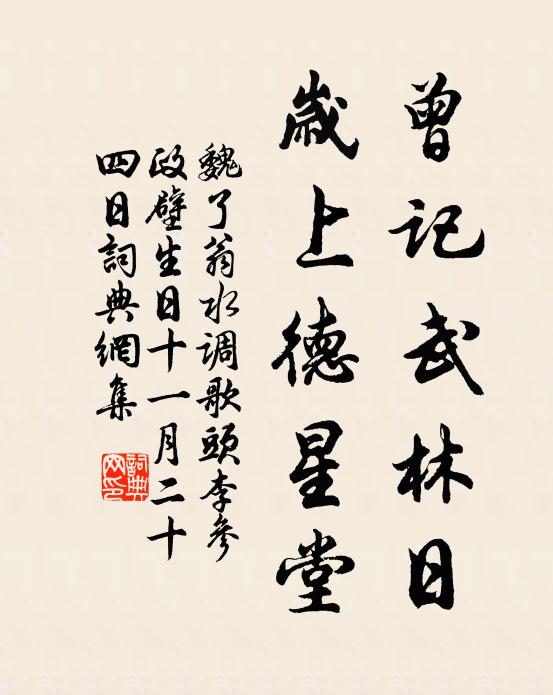 曾记武林日
歲上德星堂
魏了翁水调歌頭李参
政壁生日十一月二十
四日詞典網集
詞典网印